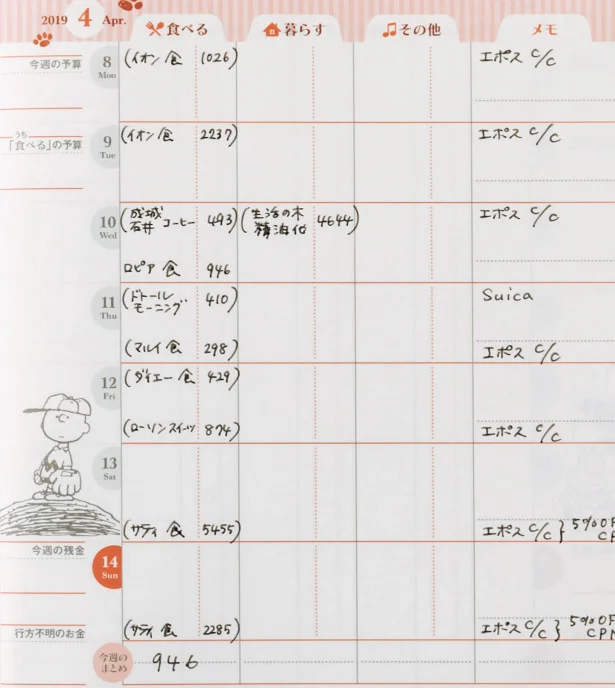 2019 4 Apr.
食べる 暮らす その他 メモ
今週の予算
8 Mon (イオン 食 1026) エポス C/C
うち
「食べる」の予算
9 Tue (イオン 食 2237) エポス C/C
10 Wed (成城石井 コーヒー 493) (生活の木 精油代 4644) エポス C/C
ロピア 食 946
11 Thu (ドトール モーニング 410) Suica
(マルイ 食 298) エポス C/C
12 Fri (ダイエー 食 429)
(ローソン スイーツ 874) エポス C/C
13 Sat
(サティ 食 5455) エポス C/C } 5%OF
CP
今週の残金
14 Sun
行方不明のお金
(サティ 食 2285) エポス C/C } 5%OF
CPN
今週のまとめ 946